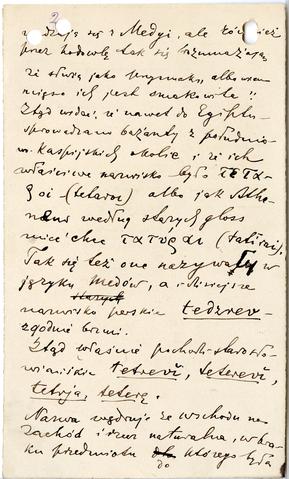 2
wodzą się z Medyi, ale również
przez hodowlę tak się rozmnażają,
że służą jako przysmak, albowiem
mięso ich jest smakowite."
Ztąd widać, że nawet do Egiptu
sprowadzano bażanty z południo-
w. Kaspijskich okolic i że ich
właściwe nazwisko było τετα-
ροι (tetaroi) albo jak Athe-
neus według starych gloss
mieć chce τατύραι (tatirai).
Tak się też one nazywały w
języku Medów, a dzisiejsze
nazwisko perskie tedzrev
zgodnie brmi.
Ztąd właśnie pochodzi starosło-
wiańskie tetrevĭ, teterevĭ,
tetrja, teterę.
Nazwa wędruje ze wschodu na
zachód i rzecz naturalna, w bra-
ku przedmiotu do którego była